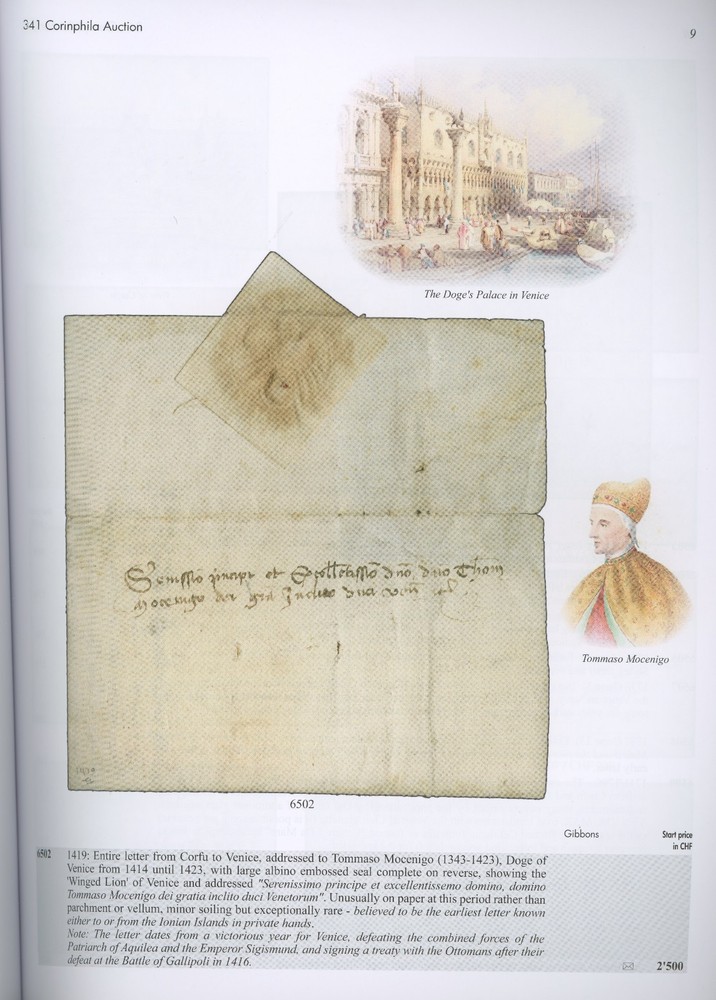 341 Corinphila Auction
9
The Doge's Palace in Venice
Tommaso Mocenigo
6502
Gibbons
Start price
in CHF
6502
1419: Entire letter from Corfu to Venice, addressed to Tommaso Mocenigo (1343-1423), Doge of
Venice from 1414 until 1423, with large albino embossed seal complete on reverse, showing the
'Winged Lion' of Venice and addressed "Serenissimo principe et excellentissemo domino, domino
Tommaso Mocenigo dei gratia inclito duci Venetorum". Unusually on paper at this period rather than
parchment or vellum, minor soiling but exceptionally rare - believed to be the earliest letter known
either to or from the Ionian Islands in private hands.
Note: The letter dates from a victorious year for Venice, defeating the combined forces of the
Patriarch of Aquilea and the Emperor Sigismund, and signing a treaty with the Ottomans after their
defeat at the Battle of Gallipoli in 1416.
2'500